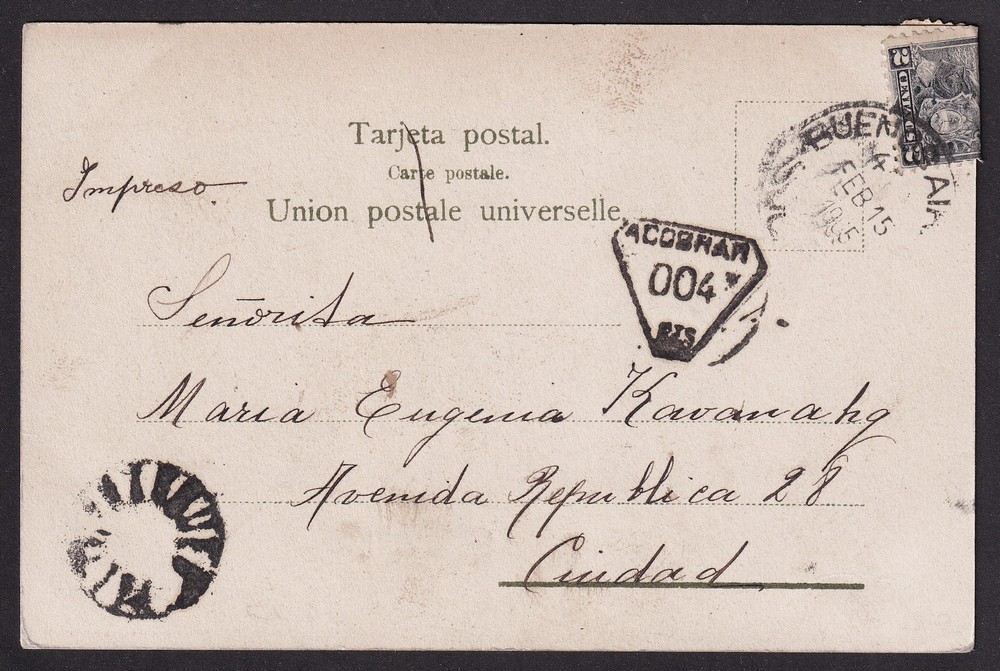 Tarjeta postal.
Carte postale.
Union postale universelle.
Impreso
BUENOS AIR
FEB 15
1905
A COBRAR
004
CTS
Señorita
Maria Eugenia Kavanahg
Avenida Republica 28
Ciudad